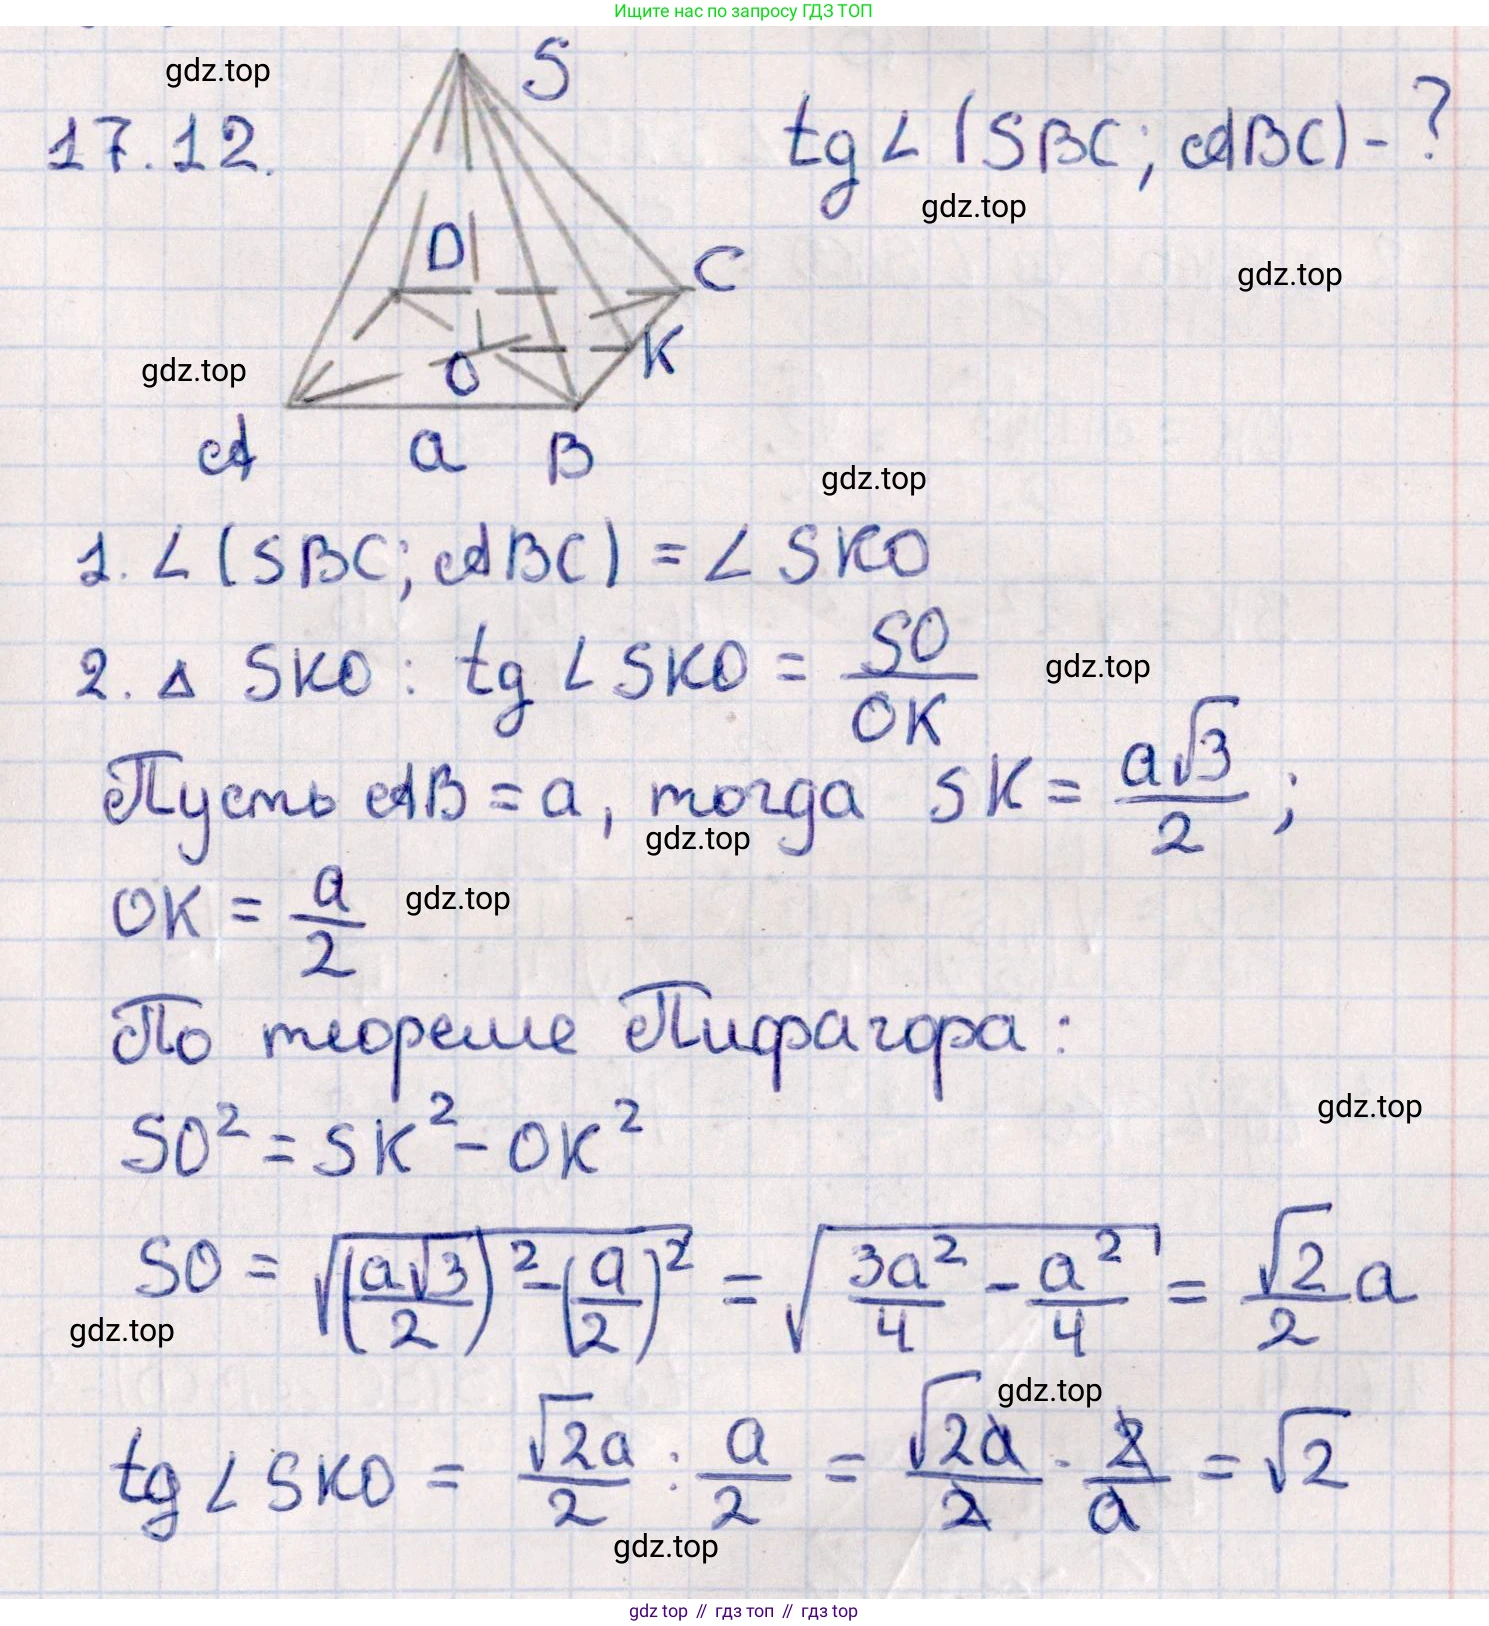 Ищите нас по запросу ГДЗ ТОП
gdz.top
S
17.12.
tg ∠ (SBC; ABC) - ?
gdz.top
gdz.top
D
C
K
O
gdz.top
A
a
B
gdz.top
1. ∠ (SBC; ABC) = ∠ SKO
2. Δ SKO : tg ∠ SKO = SO/OK
gdz.top
Пусть AB = a, тогда SK = a√3/2 ;
gdz.top
OK = a/2
gdz.top
По теореме Пифагора:
gdz.top
SO² = SK² - OK²
SO = √((a√3/2)² - (a/2)²) = √(3a²/4 - a²/4) = √2/2 a
gdz.top
gdz.top
tg ∠ SKO = √2a/2 : a/2 = √2a/2 · 2/a = √2
gdz.top
gdz top // гдз топ // гдз top